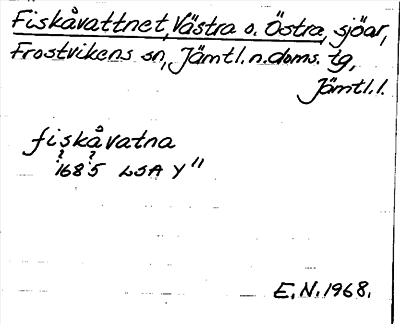 Fiskåvattnet, Västra o. Östra, sjöar,
Frostvikens sn, Jämtl. n. doms. tg,
Jämtl. l.
fiskåvatna
? ?
1685 LSA Y"
E. N. 1968.